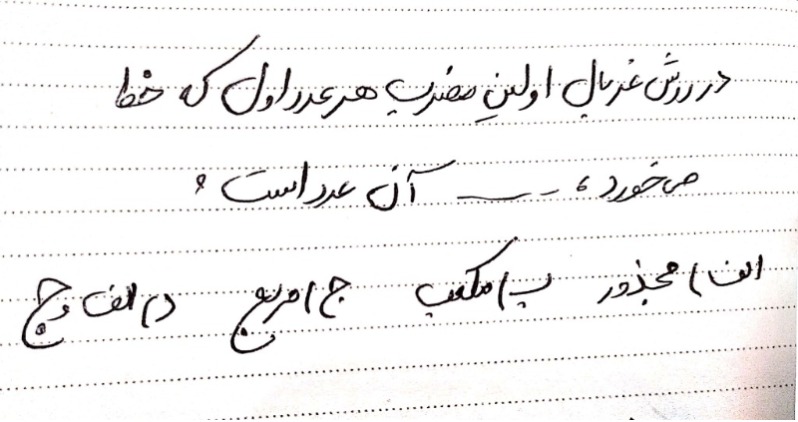 در روش غربال اولین مضرب هر عدد اول که خط
می‌خورد، ــــ آن عدد است؟
الف) مجذور ب) مکعب ج) مربع د) الف و ج